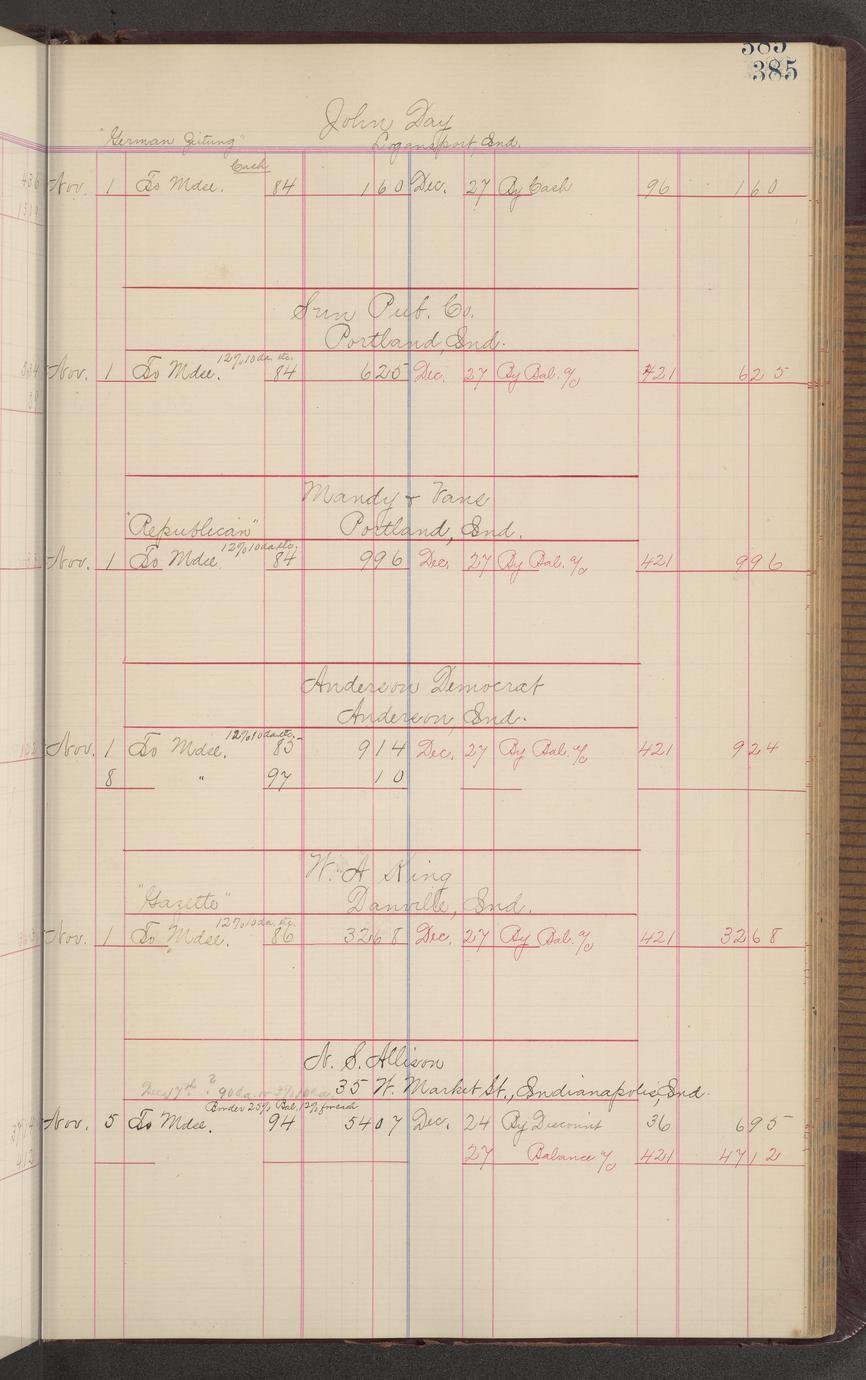 385
385
John Day
"German Zeitung" Logansport, Ind.
Cash
Nov. 1 To Mdse. 84 160 Dec. 27 By Cash 96 160
Sun Pub. Co.
Portland, Ind.
12% 10 da. etc.
Nov. 1 To Mdse. 84 625 Dec. 27 By Bal. a/c 421 625
Mandy & Vans
"Republican" Portland, Ind.
12% 10 da. etc.
Nov. 1 To Mdse. 84 996 Dec. 27 By Bal. a/c 421 996
Anderson Democrat
Anderson, Ind.
12% 10 da. etc.
Nov. 1 To Mdse. 85 914 Dec. 27 By Bal. a/c 421 924
8 " 97 10
W. A King
"Gazette" Danville, Ind.
12% 10 da. etc.
Nov. 1 To Mdse. 86 3268 Dec. 27 By Bal. a/c 421 3268
N. S. Allison
Dec 17th ? 90 da. or 3% 10 da 35 W. Market St., Indianapolis, Ind.
Border 25% Bal. 12% for cash
Nov. 5 To Mdse. 94 5407 Dec. 24 By Discount 36 695
27 Balance a/c 421 4712